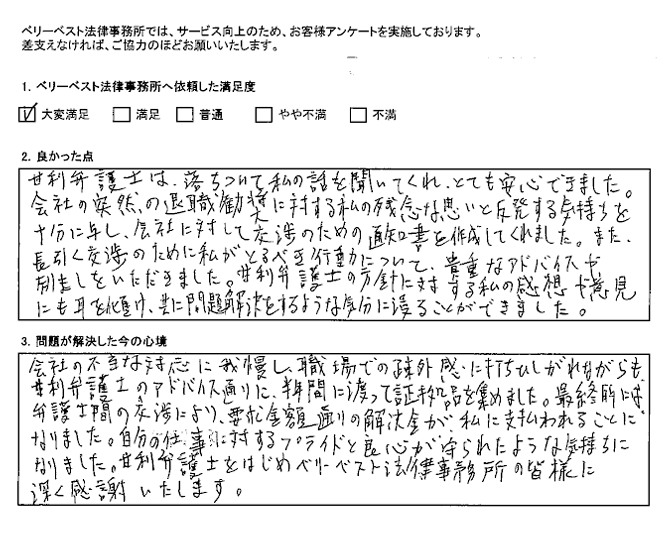 ベリーベスト法律事務所では、サービス向上のため、お客様アンケートを実施しております。
差支えなければ、ご協力のほどお願いいたします。
1. ベリーベスト法律事務所へ依頼した満足度
大変満足 満足 普通 やや不満 不満
2. 良かった点
甘利弁護士は、落ちついて私の話を聞いてくれ、とても安心できました。
会社の突然の退職勧奨に対する私の残念な思いと反発する気持ちを
十分に与し、会社に対して交渉のための通知書を作成してくれました。また、
長引く交渉のために私がとるべき行動について、貴重なアドバイスや
励ましをいただきました。甘利弁護士の方針に対する私の感想や意見
にも耳を傾け、共に問題解決をするような気分に浸ることができました。
3. 問題が解決した今の心境
会社の不当な対応に我慢し、職場での疎外感に打ちひしがれながらも、
甘利弁護士のアドバイス通りに、半年間に渡って証拠品を集めました。最終的には
弁護士間の交渉により、要求金額通りの解決金が私に支払われることに
なりました。自分の仕事に対するプライドと良心が守られたような気持ちに
なりました。甘利弁護士をはじめベリーベスト法律事務所の皆様に
深く感謝いたします。